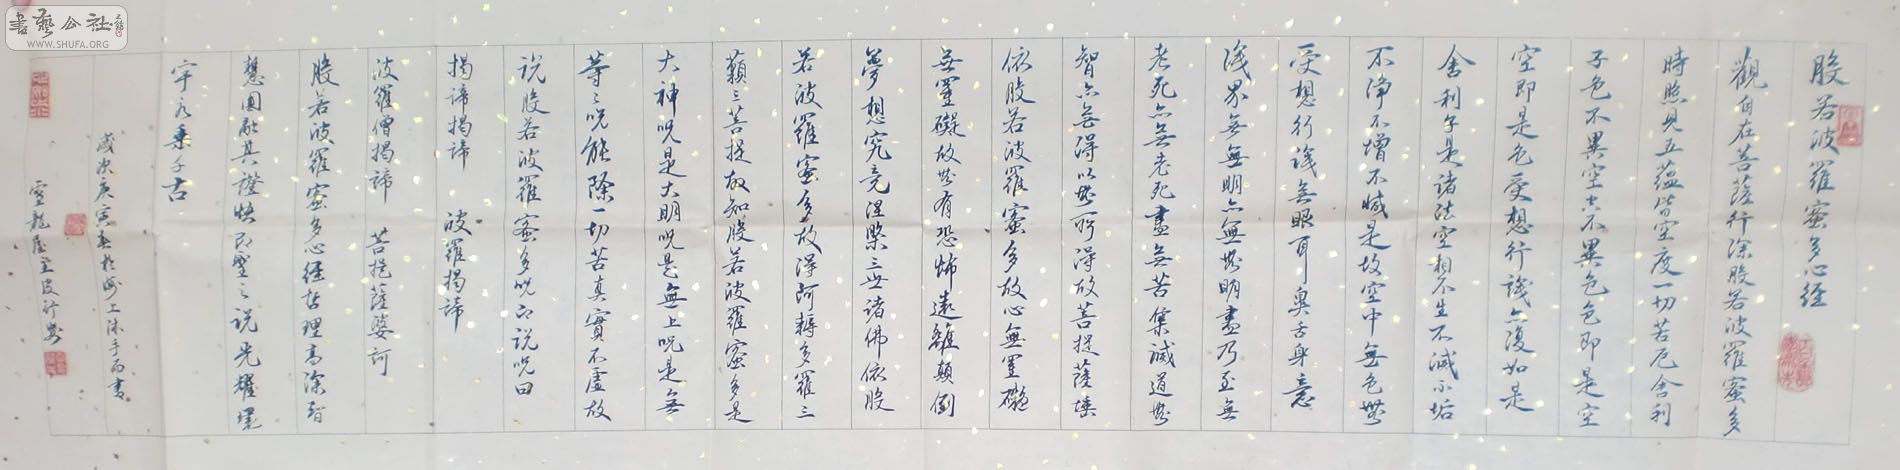 書藝公社
WWW.SHUFA.ORG
般若波羅蜜多心經
觀自在菩薩行深般若波羅蜜多
時照見五蘊皆空度一切苦厄舍利
子色不異空々不異色色即是空
空即是色受想行識亦復如是
舍利子是諸法空相不生不滅不垢
不淨不增不減是故空中無色無
受想行識無眼耳鼻舌身意
識界無無明亦無無明盡乃至無
老死亦無老死盡無苦集滅道無
智亦無得以無所得故菩提薩埵
依般若波羅蜜多故心無罣礙
無罣礙故無有恐怖遠離顛倒
夢想究竟涅槃三世諸佛依般
若波羅蜜多故得阿耨多羅三
藐三菩提故知般若波羅蜜多是
大神咒是大明咒是無上咒是無
等々咒能除一切苦真實不虛故
說般若波羅蜜多咒即說咒曰
揭諦揭諦 波羅揭諦
波羅僧揭諦 菩提薩婆訶
般若波羅蜜多心經哲理高深智
慧圓融其證之說光耀環
宇永垂千古
歲次庚寅春於上沐手而書
龍屋主